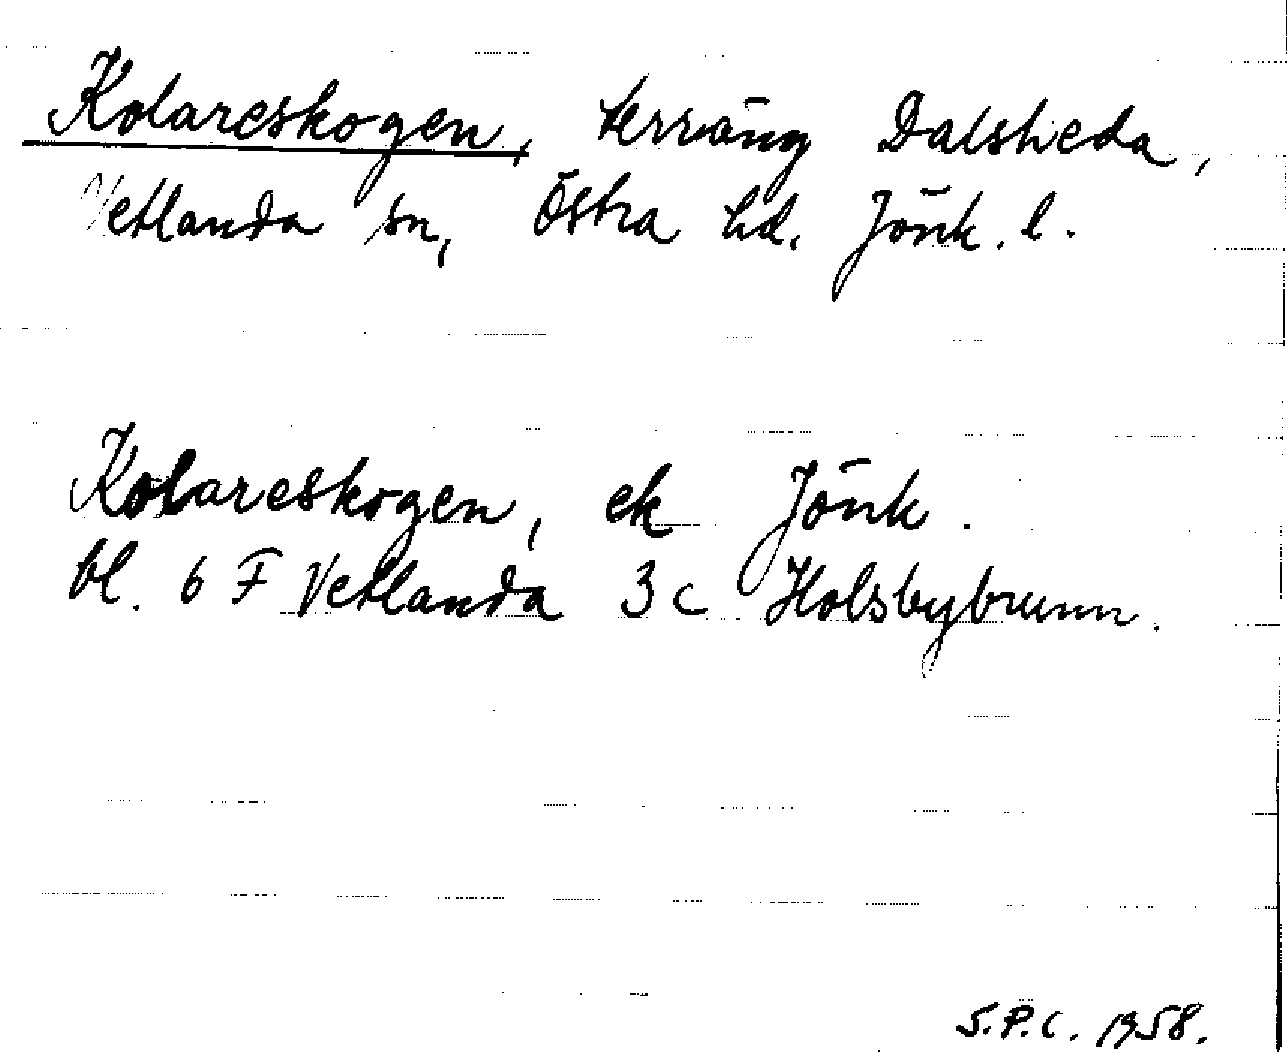 Kolareskogen, terräng Dalsheda,
Vetlanda sn, Östra hd. Jönk. l.
Kolareskogen, ek Jönk.
bl. 6 F Vetlanda 3 c Holsbybrunn.
S.P.C. 1958.